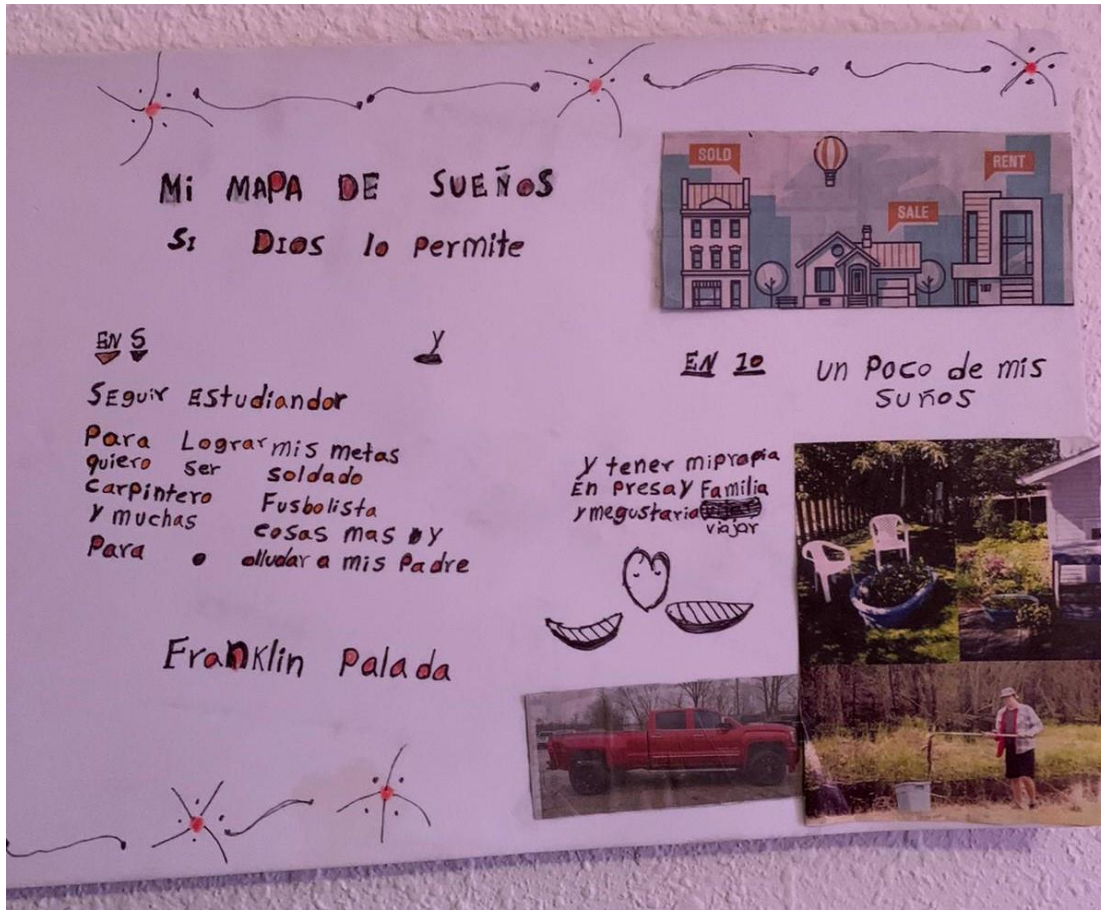 Mi MAPA DE SUEÑOS
SI Dios lo permite
SOLD
RENT
SALE
EN 5 Y
SEguir EStudiandor
Para Lograr mis metas
quiero ser soldado
carpintero Fusbolista
y muchas cosas mas y
Para alludar a mis Padre
EN 10
un Poco de mis
suños
y tener mi propia
En presa y Familia
y megustaria
viajar
Franklin Palada